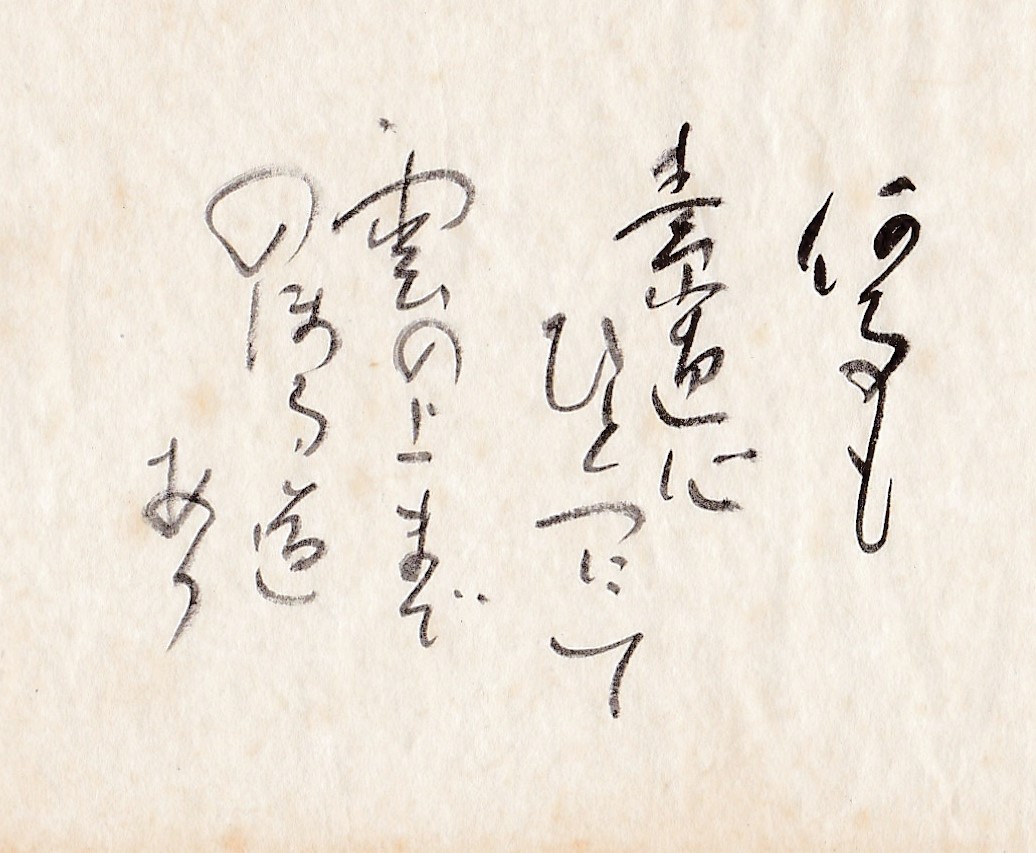 何事も
素直心
ひとつにて
雲の上まで
のほる道
あり